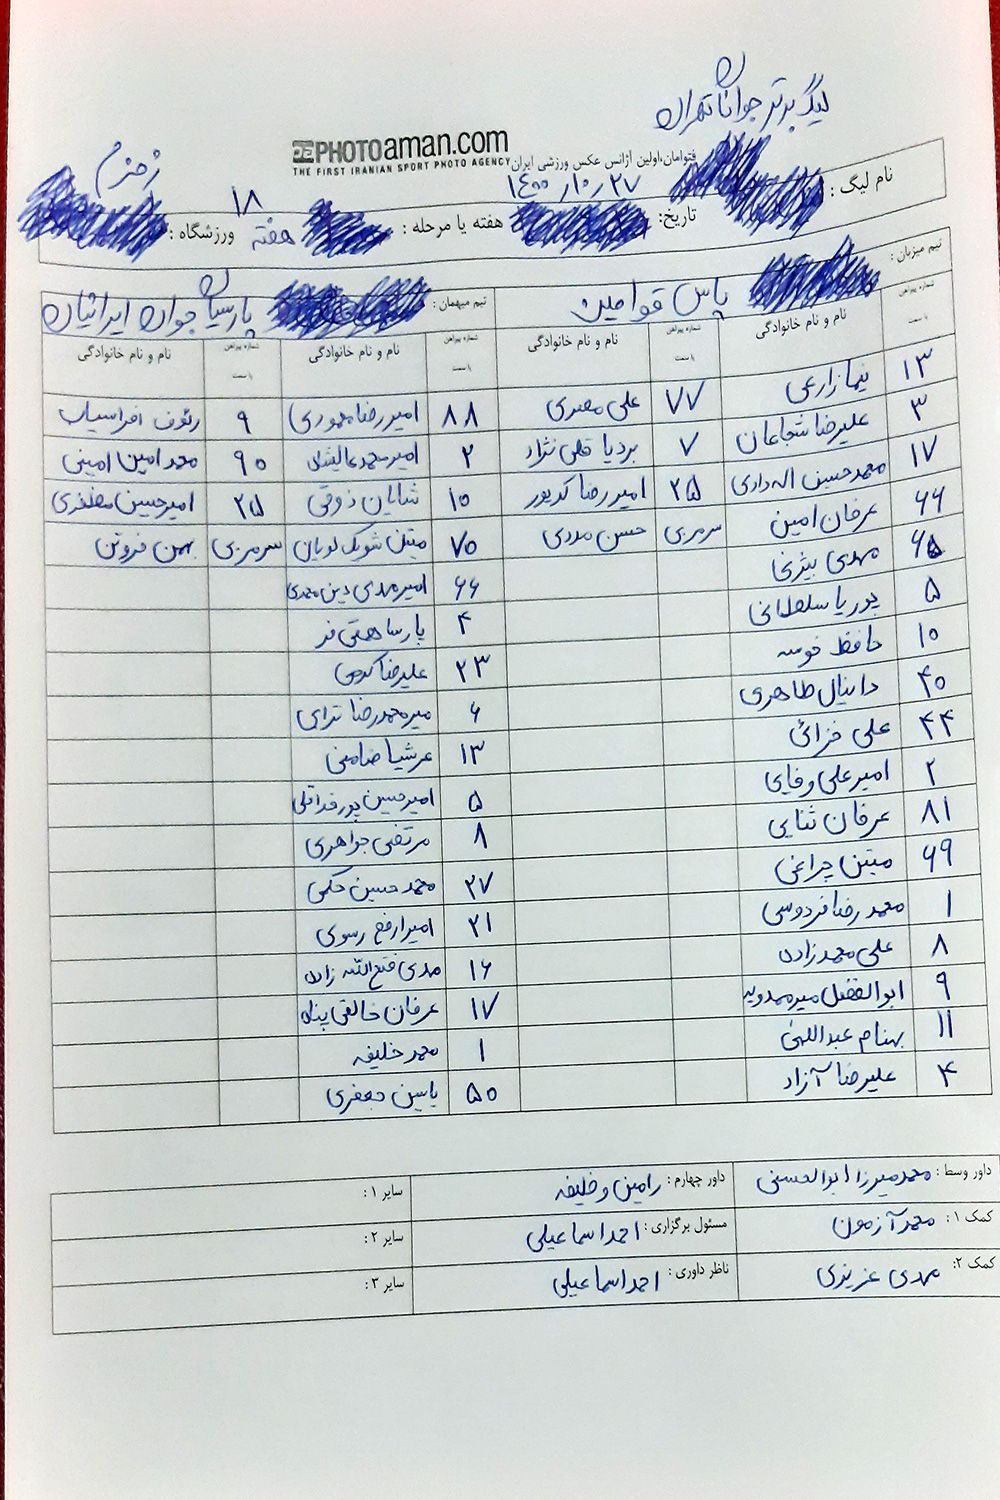 لیگ برتر جوانان تهران
PHOTOaman.com
THE FIRST IRANIAN SPORT PHOTO AGENCY
فتوامان،اولین آژانس عکس ورزشی ایران
نام لیگ :
تاریخ: ۱۴۰۰/۱۰/۲۷
هفته یا مرحله : هفته ۱۸
ورزشگاه :
تیم میزبان : پاس قوامین
تیم میهمان : پارسیان جوان ایرانیان
شماره پیراهن یا سمت نام و نام خانوادگی شماره پیراهن یا سمت نام و نام خانوادگی شماره پیراهن یا سمت نام و نام خانوادگی شماره پیراهن یا سمت نام و نام خانوادگی
۱۳ نیما زارعی ۷۷ علی مصری ۸۸ امیررضا محمودی ۹ رئوف افراسیاب
۳ علیرضا شجاعان ۷ بردیا قلی نژاد ۲ امیرمحمد ۹۰ محمد امین امینی
۱۷ محمدحسین اله دادی ۲۵ امیررضا کدیور ۱۰ شایان ذوقی ۲۵ امیرحسین مظفری
۶۶ عرفان امین سرمربی حسن مددی ۷۰ متین سرمربی بهمن فروتن
مهدی بیژنی ۶۶ امیرمهدی دین محمدی
۵ پوریا سلطانی ۴ پارسا همتی فر
۱۰ حافظ ۲۳ علیرضا کرمی
۴۰ دانیال طاهری ۶ میرمحمدرضا ترابی
۴۴ علی خزائی ۱۳ عرشیا ضامنی
۲ امیرعلی وفایی ۵ امیرحسین
۸۱ عرفان ثنایی ۸ مرتضی جواهری
۶۹ متین چراغی ۲۷ محمد حسین حکمی
۱ محمدرضا فردوسی ۲۱ امیرارفع رسولی
۸ علی محمدزاده ۱۶ مهدی فتح الله زاده
۹ ابوالفضل ۱۷ عرفان خالقی پناه
۱۱ بهنام عبداللهی ۱ محمد خلیفه
۴ علیرضا آزاد ۵۰ یاسین جعفری
داور وسط : محمد میرزا ابوالحسنی داور چهارم : رامین وظیفه سایر ۱ :
کمک ۱ : محمد آزمون مسئول برگزاری : احمد اسماعیلی سایر ۲ :
کمک ۲: مهدی عزیزی ناظر داوری : احمد اسماعیلی سایر ۳ :